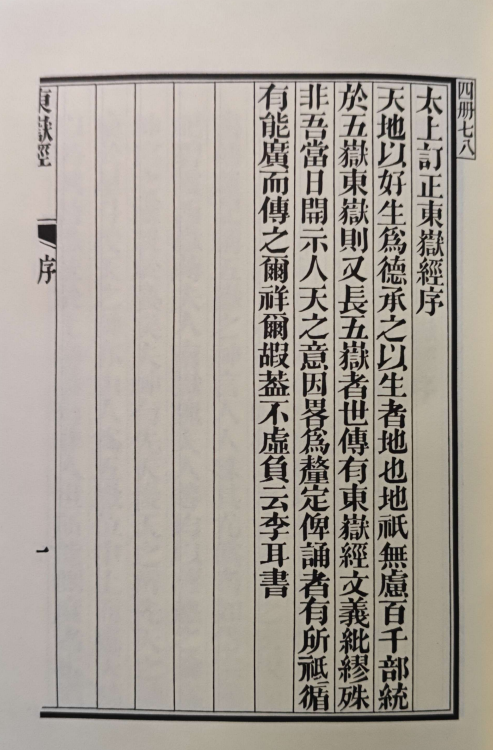 四册七八
太上訂正東嶽經序
天地以好生爲德承之以生者地也地祇無慮百千部統
於五嶽東嶽則又長五嶽者世傳有東嶽經文義紕繆殊
非吾當日開示人天之意因畧爲釐定俾誦者有所祗循
有能廣而傳之爾祥爾嘏葢不虛負云李耳書
東嶽經
序
一